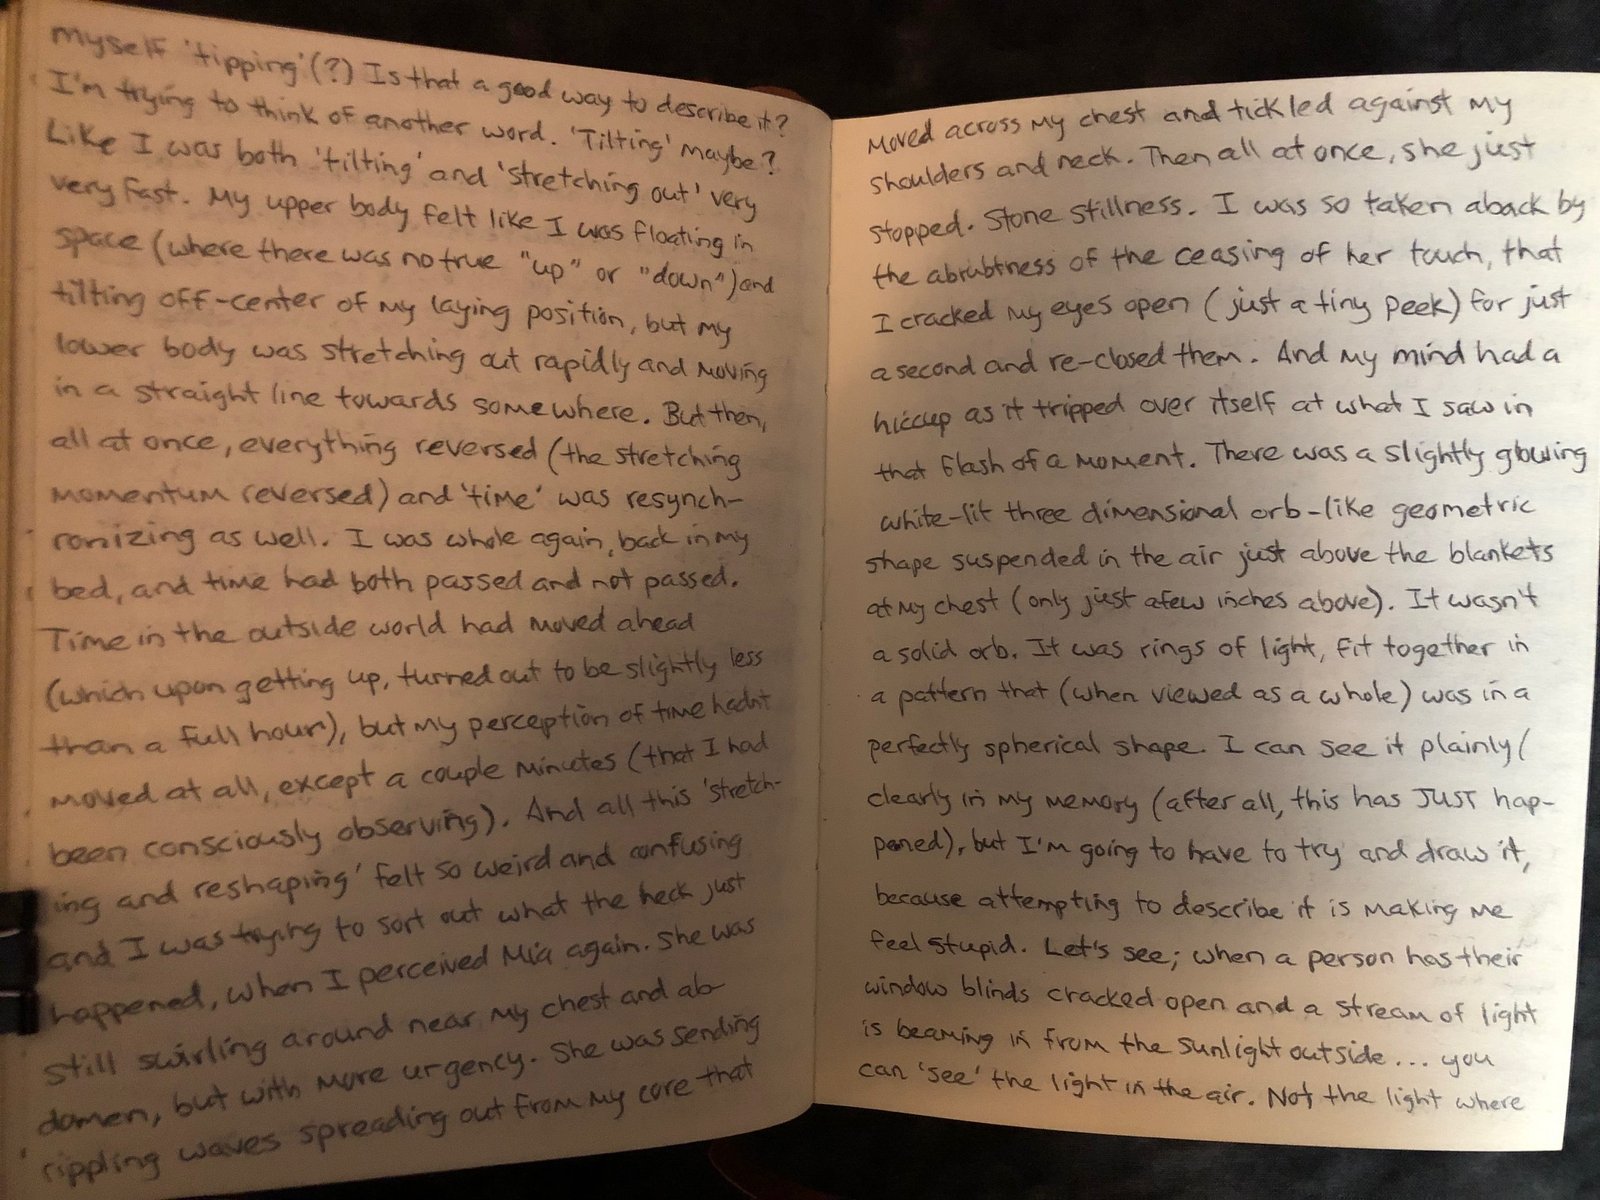 myself 'tipping'(?) Is that a good way to describe it?
I'm trying to think of another word. 'Tilting' maybe?
Like I was both 'tilting' and 'stretching out' very
very fast. My upper body felt like I was floating in
space (where there was no true "up" or "down") and
tilting off-center of my laying position, but my
lower body was stretching out rapidly and moving
in a straight line towards somewhere. But then,
all at once, everything reversed (the stretching
momentum reversed) and 'time' was resynch-
ronizing as well. I was whole again, back in my
bed, and time had both passed and not passed.
Time in the outside world had moved ahead
(which upon getting up, turned out to be slightly less
than a full hour), but my perception of time hadn't
moved at all, except a couple minutes (that I had
been consciously observing). And all this 'stretch-
ing and reshaping' felt so weird and confusing
and I was trying to sort out what the heck just
happened, when I perceived Mia again. She was
still swirling around near my chest and ab-
domen, but with more urgency. She was sending
rippling waves spreading out from my core that
moved across my chest and tickled against my
shoulders and neck. Then all at once, she just
stopped. Stone stillness. I was so taken aback by
the abrubtness of the ceasing of her touch, that
I cracked my eyes open (just a tiny peek) for just
a second and re-closed them. And my mind had a
hiccup as it tripped over itself at what I saw in
that flash of a moment. There was a slightly glowing
white-lit three dimensional orb-like geometric
shape suspended in the air just above the blankets
at my chest (only just a few inches above). It wasn't
a solid orb. It was rings of light, fit together in
a pattern that (when viewed as a whole) was in a
perfectly spherical shape. I can see it plainly/
clearly in my memory (after all, this has JUST hap-
pened), but I'm going to have to try and draw it,
because attempting to describe it is making me
feel stupid. Let's see; when a person has their
window blinds cracked open and a stream of light
is beaming in from the sunlight outside... you
can 'see' the light in the air. Not the light where